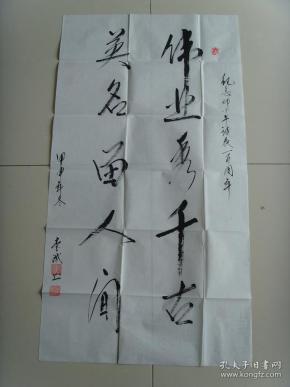 纪念邓小平诞辰一百周年
伟业秀千古
英名留人间
甲申年冬
孔夫子旧书网